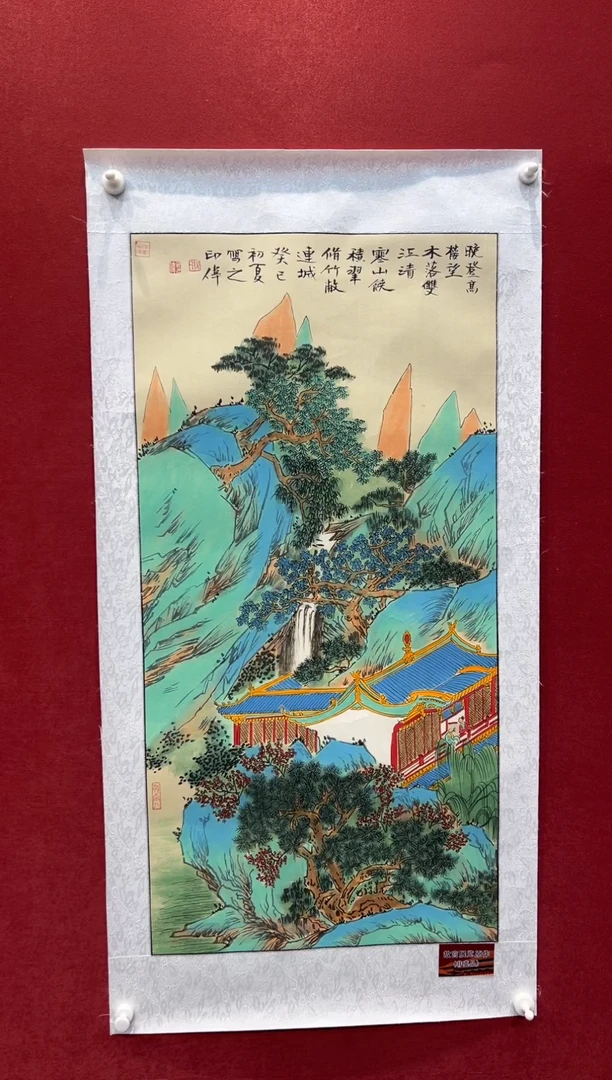 晚登高
楼望
木落雙
江清
寒山饒
積翠
脩竹蔽
連城
癸巳
初夏
寫之
印偉